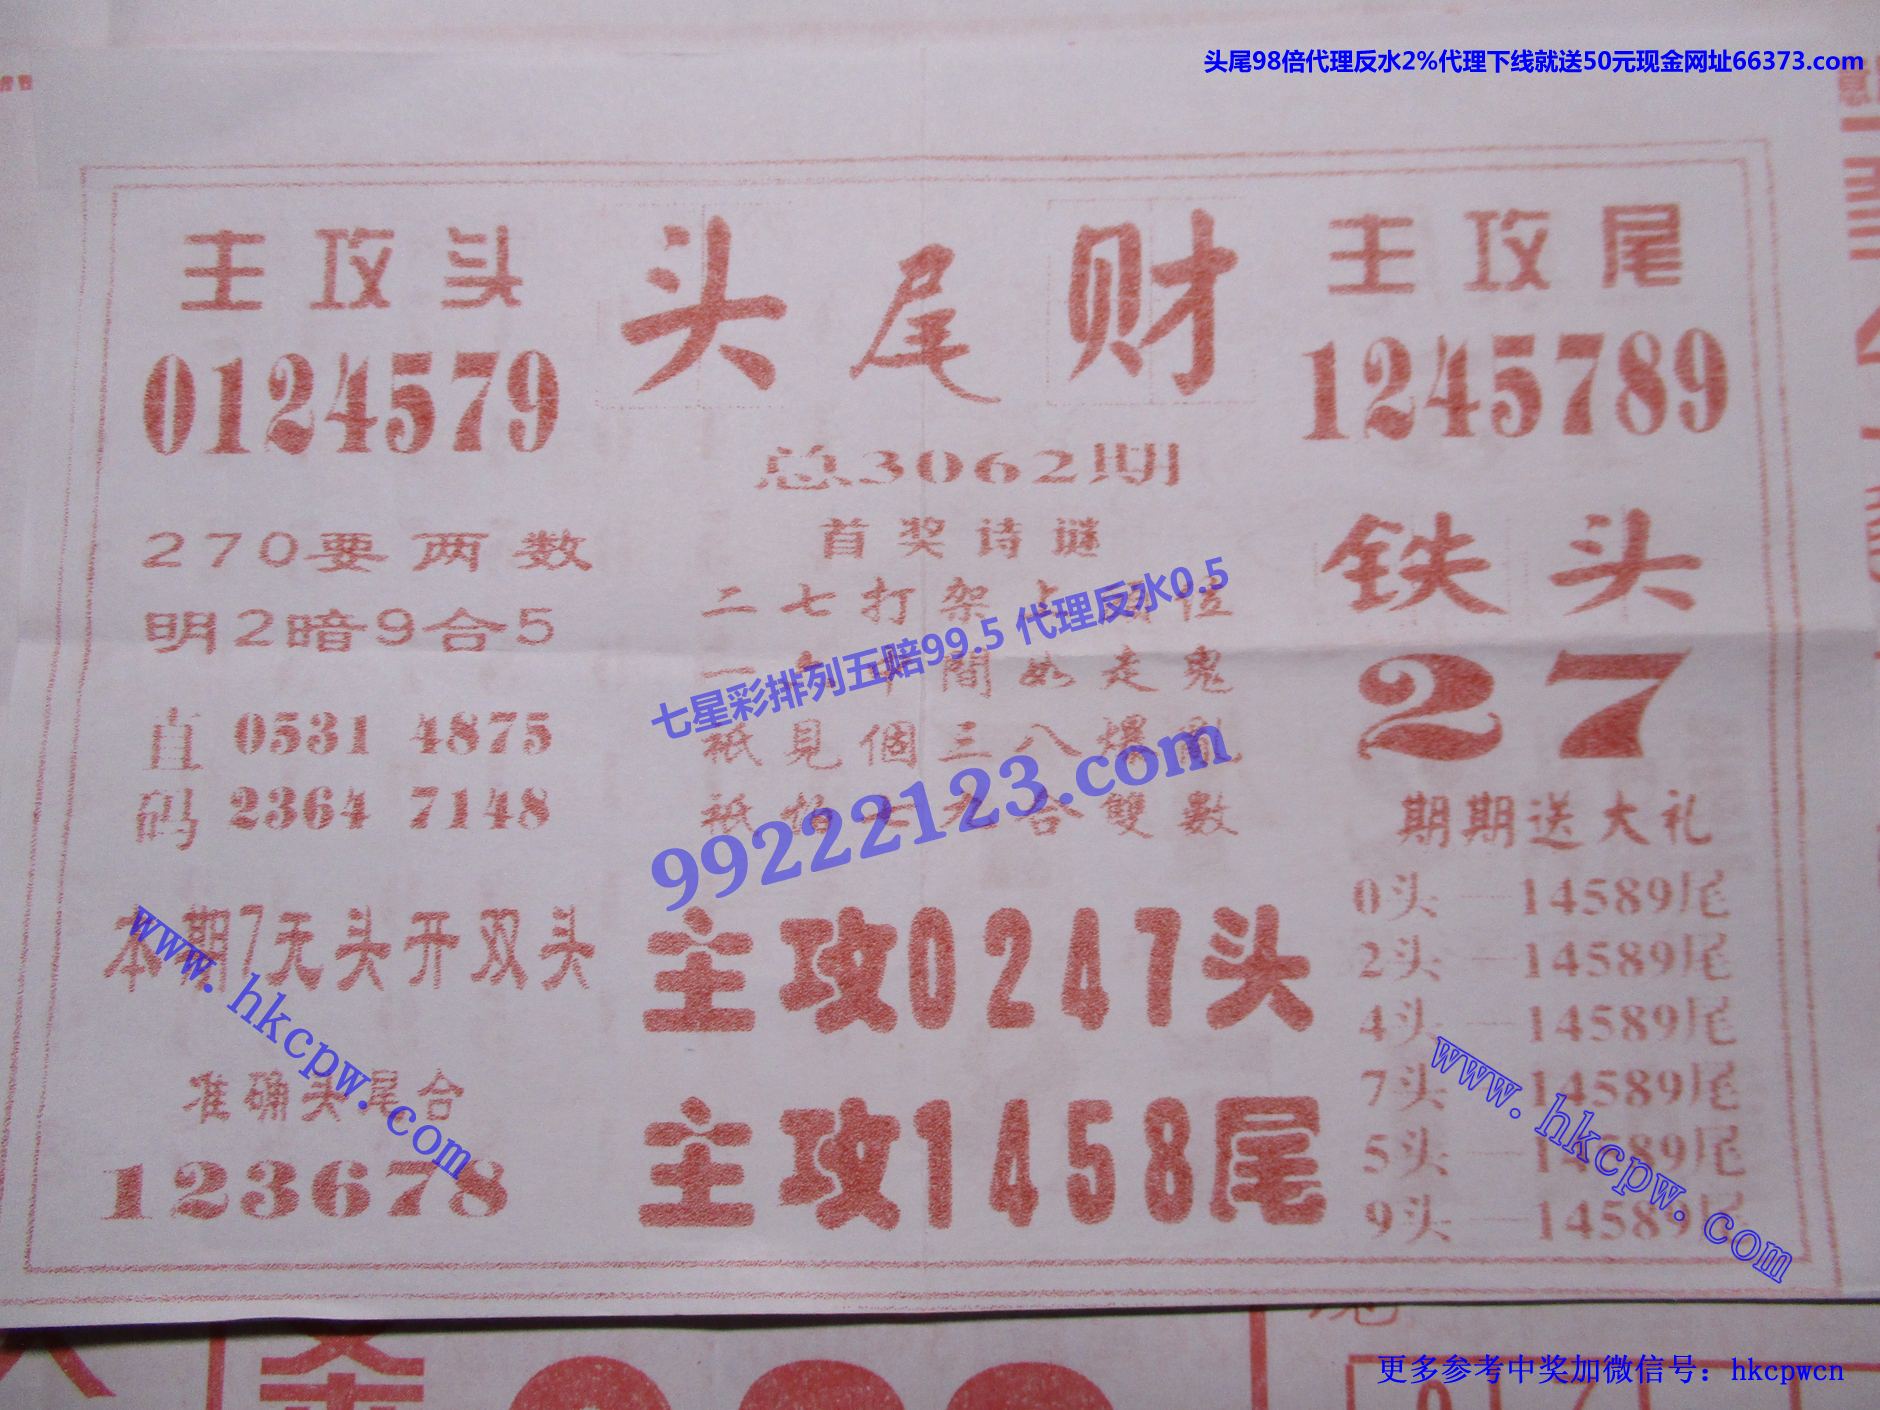 头尾98倍代理反水2%代理下线就送50元现金网址66373.com
主攻头
0124579
头尾财
主攻尾
1245789
总3062期
270要两数
明2暗9合5
首奖诗谜
二七打架
間如走鬼
祇見個三八
合雙數
七星彩排列五赔99.5 代理反水0.5
99222123.com
铁头
27
直码
0531 4875
2364 7148
期期送大礼
0头—14589尾
2头—14589尾
4头—14589尾
7头—14589尾
5头—14589尾
9头—14589尾
本期7天头开双头
www.hkcpw.com
主攻0247头
准确头尾合
123678
主攻1458尾
www.hkcpw.com
更多参考中奖加微信号：hkcpwcn